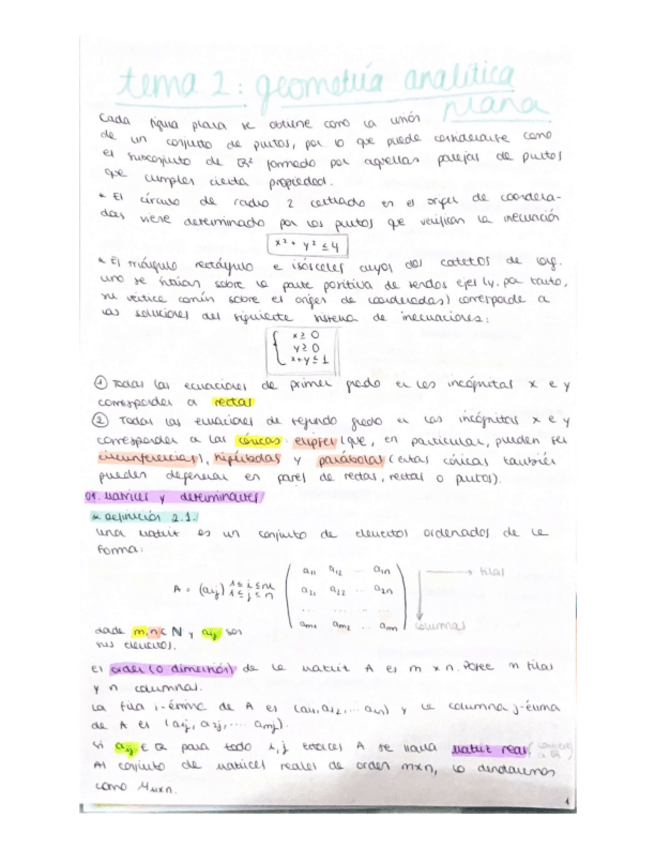 tema 2: geometría analítica
plana
Cada figura plana se obtiene como la unión
de un conjunto de puntos, por lo que puede considerarse como
el subconjunto de R² formado por aquellas parejas de puntos
que cumplen cierta propiedad.
* El círculo de radio 2 centrado en el origen de coordena-
das viene determinado por los puntos que verifican la inecuación
x² + y² ≤ 4
* El triángulo rectángulo e isósceles cuyos dos catetos de long.
uno se sitúan sobre la parte positiva de sendos ejes (y, por tanto,
su vértice común sobre el origen de coordenadas) corresponde a
las soluciones del siguiente sistema de inecuaciones:
x ≥ 0
y ≥ 0
x+y ≤ 1
① Todas las ecuaciones de primer grado en las incógnitas x e y
corresponden a rectas
② Todas las ecuaciones de segundo grado en las incógnitas x e y
corresponden a las cónicas: elipses (que, en particular, pueden ser
circunferencias), hipérbolas y parábolas (estas cónicas también
pueden degenerar en pares de rectas, rectas o puntos).
01. Matrices y determinantes
* Definición 2.1.
Una matriz es un conjunto de elementos ordenados de la
forma:
A = (aij) 1≤i≤m 1≤j≤n
a11 a12 ... a1n → filas
a21 a22 ... a2n
... ... ... ...
am1 am2 ... amn columnas
donde m,n ∈ N y aij son
sus elementos.
El orden (o dimensión) de la matriz A es m x n. Posee m filas
y n columnas.
La fila i-ésima de A es (ai1, ai2, ... ain) y la columna j-ésima
de A es (a1j, a2j, ... amj).
Si aij ∈ R para todo i,j entonces A se llama matriz real.
Al conjunto de matrices reales de orden mxn, lo denotaremos
como Mmxn.
1